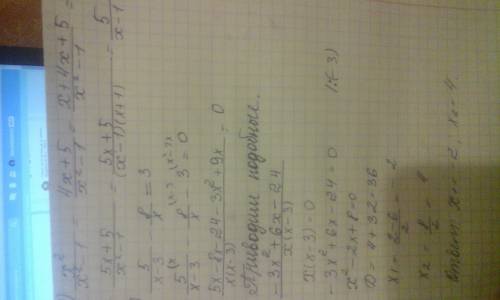 x²/(x²-1) - (4x+5)/(x²-1) = (x+4x+5)/(x²-1) =
(5x+5)/(x²-1) = (5x+5)/((x-1)(x+1)) = 5/(x-1)
5/(x-3) - 8/x = 3
5/(x-3) - 8/x - 3 = 0
(5x-8x-24-3x²+9x)/(x(x-3)) = 0
Приводим подобные.
(-3x²+6x-24)/(x(x-3))
x(x-3)=0
-3x²+6x-24=0 /:(-3)
x²-2x+8=0
D=4+32=36
x₁=(2-6)/2=-2
x₂=8/2=4
Ответ: x₁=-2, x₂=4